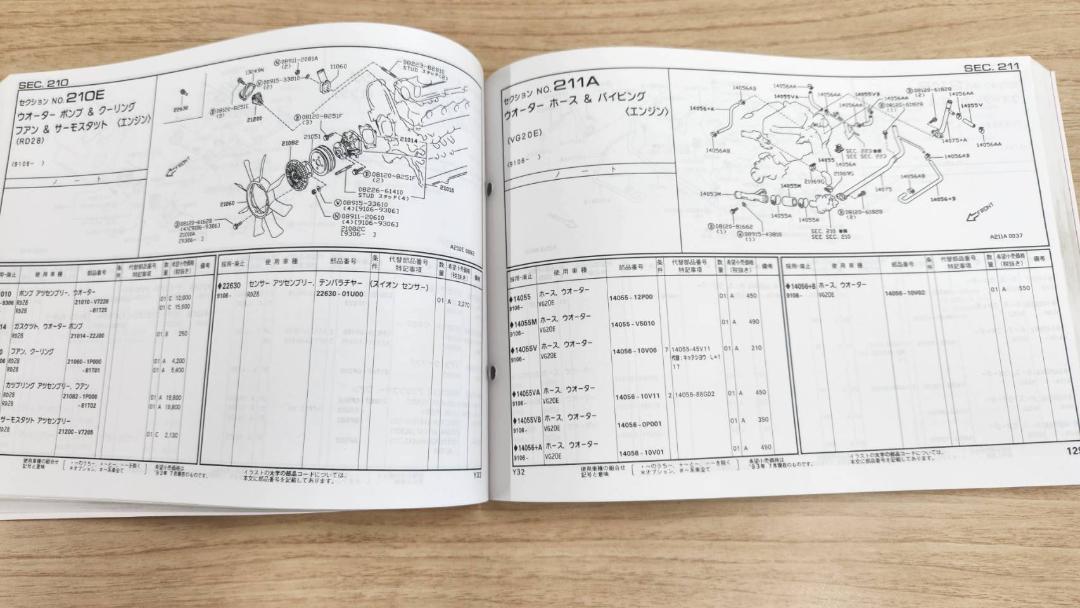 SEC. 210
セクション NO. 210E
ウオーター ポンプ & クーリング
フアン & サーモスタツト 〈エンジン〉
(RD28)
(9106- )
ノート
22630
13049N
08911-2081A
(2)
08915-33810
(2)
11060
08223-82810
STUD スタツド(2)
08120-8251E
21200
08120-8251F
(3)
21051
21082
21014
08120-8251F
(2)
08226-61410
STUD スタツド(4)
21010
21060
08915-33610
(4)[9106-9306]
08911-20610
(4)[9106-9306]
21082C
[9306- ]
08120-61628
(4)[9106-9306]
[9306- ]
FRONT
使用車種
部品番号
条件
代替部品番号
特記事項
数量
希望小売価格
(税抜き)
備考
ポンプ アツセンブリー, ウオーター
RD28
21010-V7226
01 C
ガスケツト, ウオーター ポンプ
RD28
21014-22J00
01 B 250
フアン, クーリング
RD28
21060-1P000
-81T01
01 A 4,200
カツプリング アツセンブリー, フアン
RD28
21082-1P000
-81T02
サーモスタツト アツセンブリー
RD28
21200-V7205
01 C 2,130
採用-廃止
使用車種
部品番号
条件
代替部品番号
特記事項
数量
希望小売価格
(税抜き)
備考
◆22630
9106-
センサー アツセンブリー, テンパラチヤー
RD28
22630-01U00
(スイオン センサー)
01 A 2,270
イラストの太字の部品コードについては,
本文に部品番号を記載してあります。
Y32
SEC. 211
セクション NO. 211A
ウオーター ホース & パイピング
〈エンジン〉
(VG20E)
(9106- )
ノート
14056AB
14056+A
14055VA
14056AA
14055VB
14056AA
08120-61828
(2)
14056AA
14055V
14075+A
14056AA
14056AB
14056AB
SEC. 223
SEE SEC. 223
14055
14056A
21069G
21069G
14056+B
14053M
14055M
14055A
14055A
14075
08120-61828
(2)
08120-81662
(1)
08915-43810
(1)
SEC. 210
SEE SEC. 210
FRONT
A211A 0037
採用-廃止
使用車種
部品番号
条件
代替部品番号
特記事項
数量
希望小売価格
(税抜き)
備考
◆14055
9106-
ホース, ウオーター
VG20E
14055-12P00
01 A 450
◆14055M
9106-
ホース, ウオーター
VG20E
14055-V5010
01 A 490
◆14055V
9106-
ホース, ウオーター
VG20E
14056-10V06
7 14055-45V11
01 A 210
◆14055VA
9106-
ホース, ウオーター
VG20E
14056-10V11
2 14056-88G02
01 A 450
◆14055VB
9106-
ホース, ウオーター
VG20E
14056-0P001
01 A 350
◆14056+A
9106-
ホース, ウオーター
VG20E
14056-10V01
01 A 490
使用車種
部品番号
条件
代替部品番号
特記事項
数量
希望小売価格
(税抜き)
備考
◆14056+B
9106-
ホース, ウオーター
VG20E
14056-10V02
01 A 550
Y32
イラストの太字の部品コードについては,
本文に部品番号を記載してあります。
129